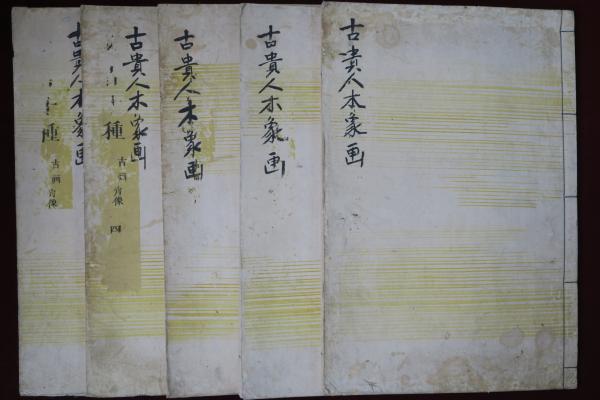 古貴人木象画
古貴人木象画
古貴人木象画
古貴人木象画
種
古画肖像
四
古貴人木象画
種
古画肖像